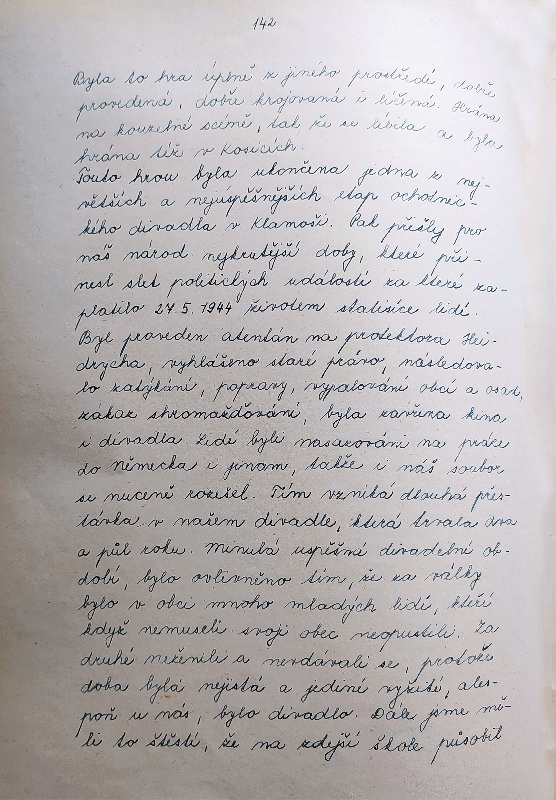 142
Byla to hra úplně z jiného prostředí, dobře
provedená, dobře krojovaná i líčená. Hrána
na kouzelné scéně, tak že se líbila a byla
hrána též v Kosicích.
Touto hrou byla ukončena jedna z nej-
větších a nejúspěšnějších etap ochotnic-
kého divadla v Klamoši. Pak přišly pro
náš národ nejkrutější doby, které při-
nesl slet politických událostí za které za-
platilo 27.5.1944 životem statisíce lidí.
Byl proveden atentán na protektora Hei-
drycha, vyhlášeno stané právo, následova-
lo zatýkání, popravy, vypalování obcí a osad,
zákaz shromažďování, byla zavřena kina
i divadla. Lidé byli nasazováni na práce
do německa i jinam, takže i náš soubor
se nuceně rozešel. Tím vzniká dlouhá přes-
távka v našem divadle, která trvala dva
a půl roku. Minulá uspěšné divadelní ob-
dobí, bylo ovlivněno tím, že za války
bylo v obci mnoho mladých lidí, kteří
když nemuseli svoji obec neopustili. Za
druhé neženili a nevdávali se, protože
doba byla nejistá a jediné vyžití, ales-
poň u nás, bylo divadlo. Dále jsme mě-
li to štěstí, že na zdejší škole působil